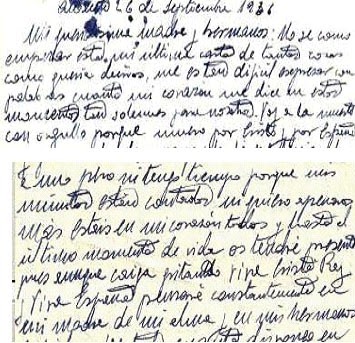 26 de Septiembre 1936
Mi queridísima madre y hermanos: No se como
empezar esta mi ultima carta de tantas cosas
como queria deciros, me es tan dificil expresar con
palabras cuanto mi corazon me dice en estos
momentos tan solemnes para nosotros. Voy a la muerte
con orgullo porque muero por Cristo y por España
pero ni tengo tiempo porque mis
minutos estan contados ni quiero apenaros
mas estais en mi corazón todos y hasta el
ultimo momento de vida os tendré presente
pues aunque caiga gritando Viva Cristo Rey
y Viva España pensaré constantemente en
mi madre de mi alma, en mis hermanos